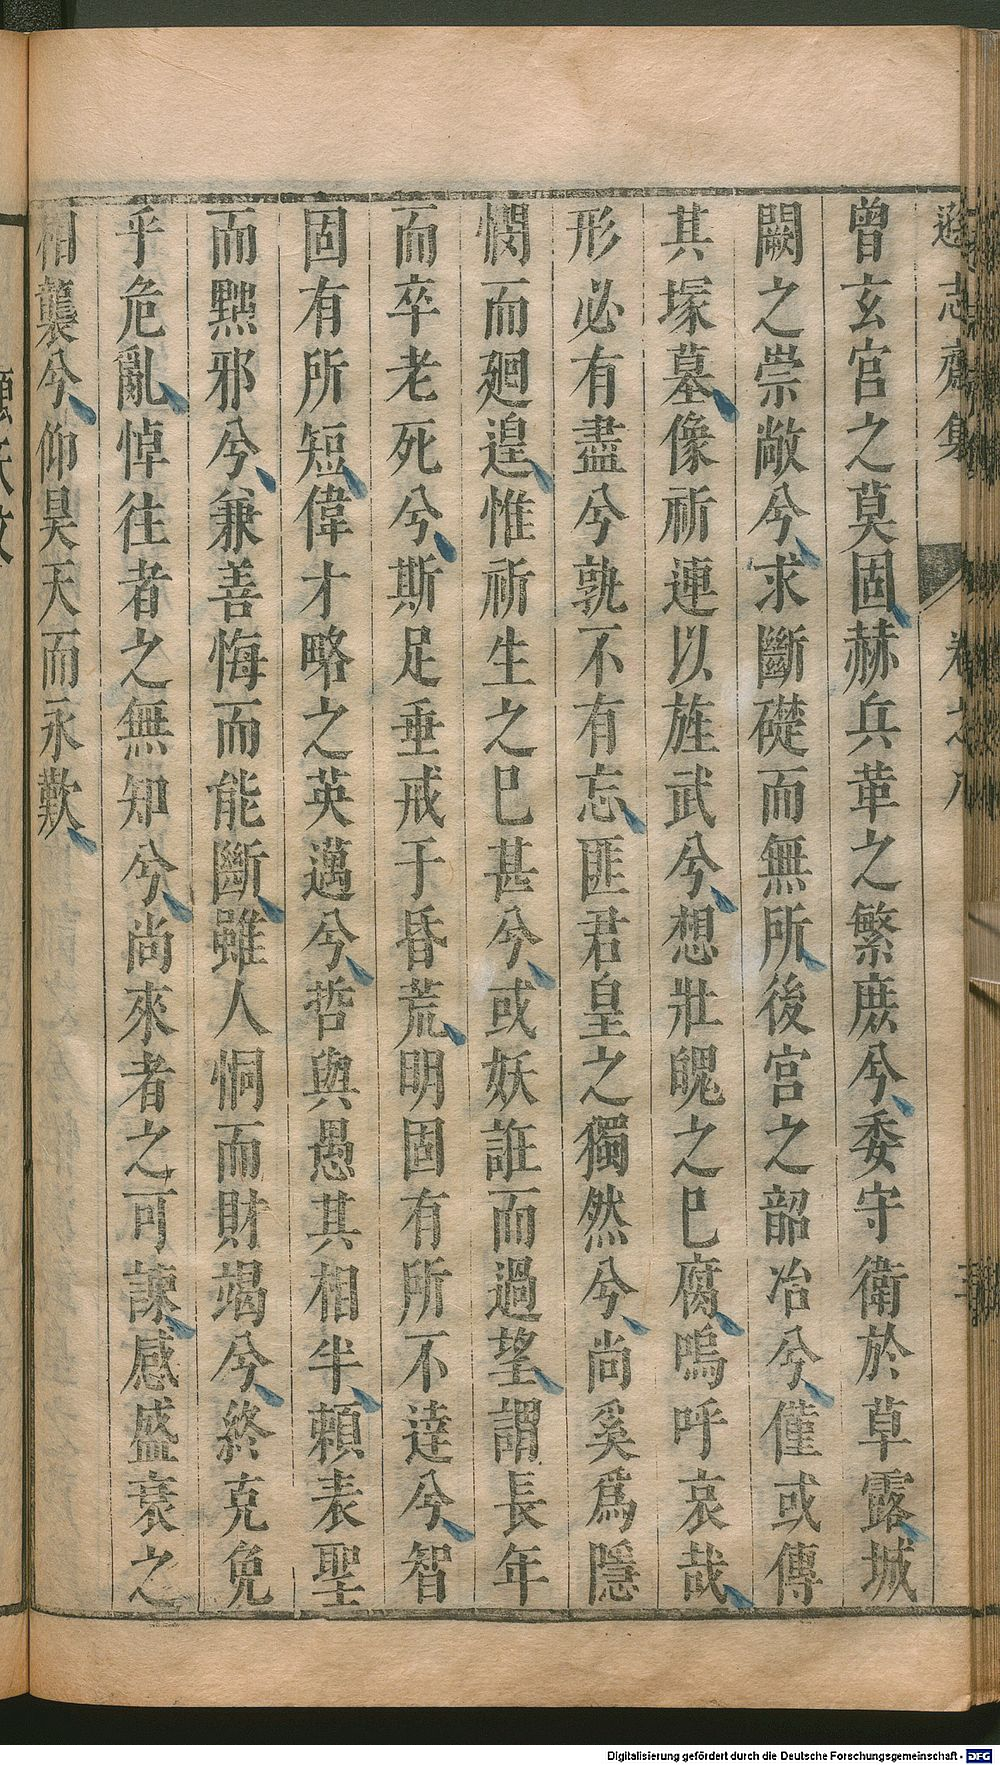 遜志齋集 卷之八
曾玄宮之莫固赫兵革之繁庶兮委守衛於草露城
闕之崇敞兮求斷礎而無所後宮之韶冶兮僅或傳
其塚墓像祈連以旌武兮想壯魄之巳腐嗚呼哀哉
形必有盡兮孰不有忘匪君皇之獨然兮尚奚爲隱
憫而廻遑惟祈生之巳甚兮或妖誑而過望謂長年
而卒老死兮斯足垂戒于昏荒明固有所不逹兮智
固有所短偉才略之英邁兮哲與愚其相半頼表聖
而黜邪兮兼善悔而能斷雖人恫而財竭兮終克免
乎危亂悼往者之無知兮尚來者之可諫感盛衰之
相襲兮仰昊天而永歎
Digitalisierung gefördert durch die Deutsche Forschungsgemeinschaft - DFG